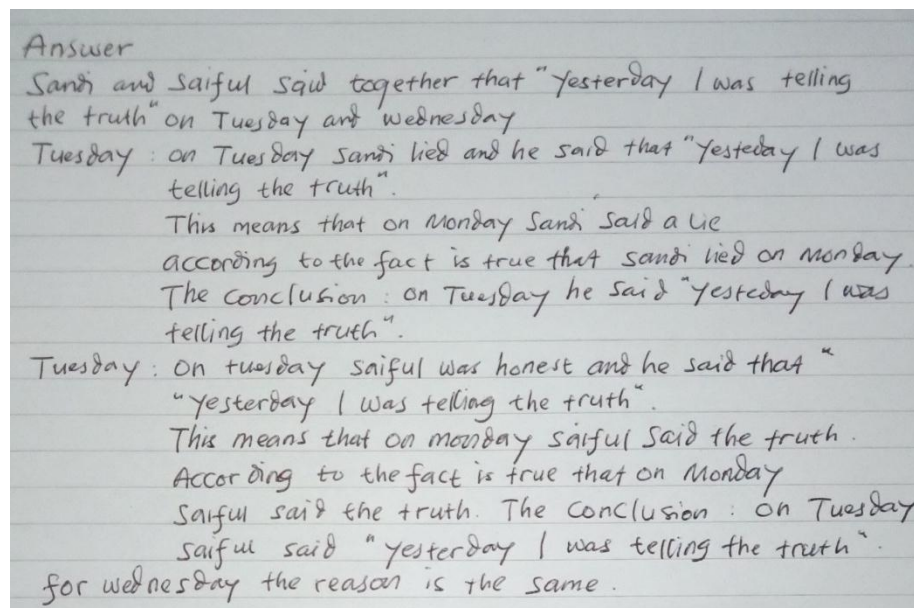 Answer
Sandi and Saiful said together that "Yesterday I was telling
the truth" on Tuesday and Wednesday
Tuesday : on Tuesday Sandi lied and he said that "Yesteday I was
telling the truth".
This means that on Monday Sandi said a lie
according to the fact is true that Sandi lied on Monday.
The conclusion : on Tuesday he said "Yesteday I was
telling the truth".
Tuesday : on tuesday Saiful was honest and he said that "
"Yesterday I was telling the truth".
This means that on monday Saiful said the truth.
According to the fact is true that on Monday
Saiful said the truth. The conclusion : on Tuesday
Saiful said "Yesterday I was telling the truth".
for wednesday the reason is the same.